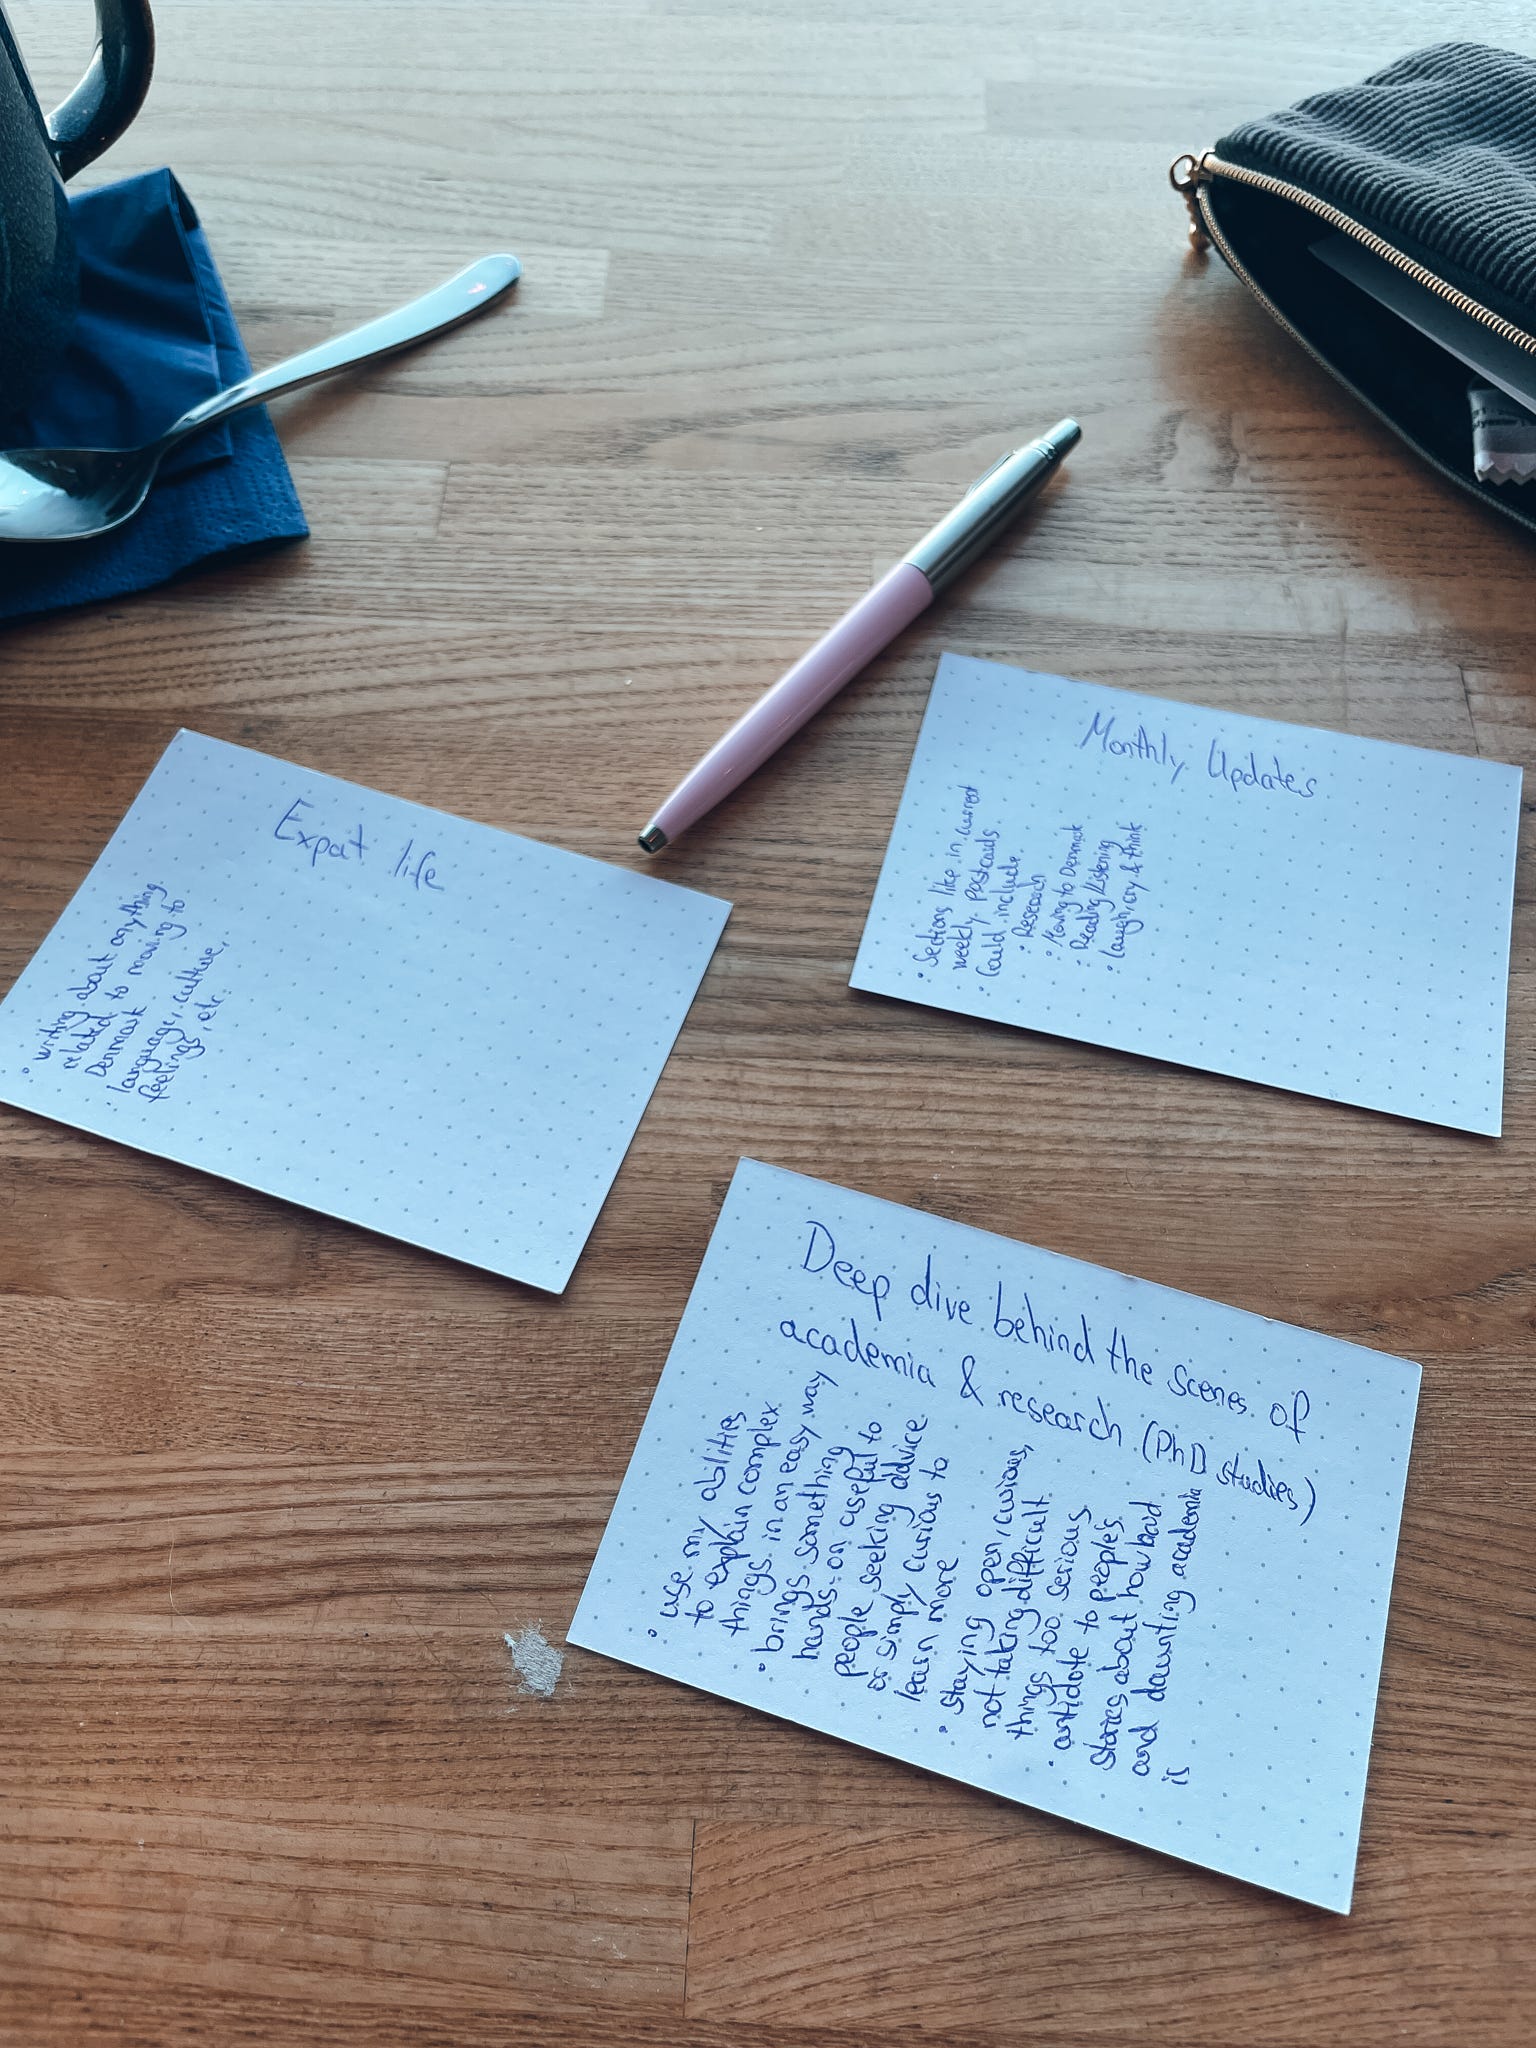 Expat life
• writing about anything
related to moving to
Denmark
• language, culture,
feelings, etc.
Monthly Updates
• Sections like in current
weekly postcards
• Could include
• Research
• Moving to Denmark
• Reading/Listening
• Laugh, cry & think
Deep dive behind the scenes of
academia & research (PhD studies)
• use my abilities
to explain complex
things in an easy way
• brings something
hands-on useful to
people seeking advice
or simply curious to
learn more
• staying open, curious,
not taking difficult
things too serious
• antidote to people's
stories about how bad
and daunting academia
is